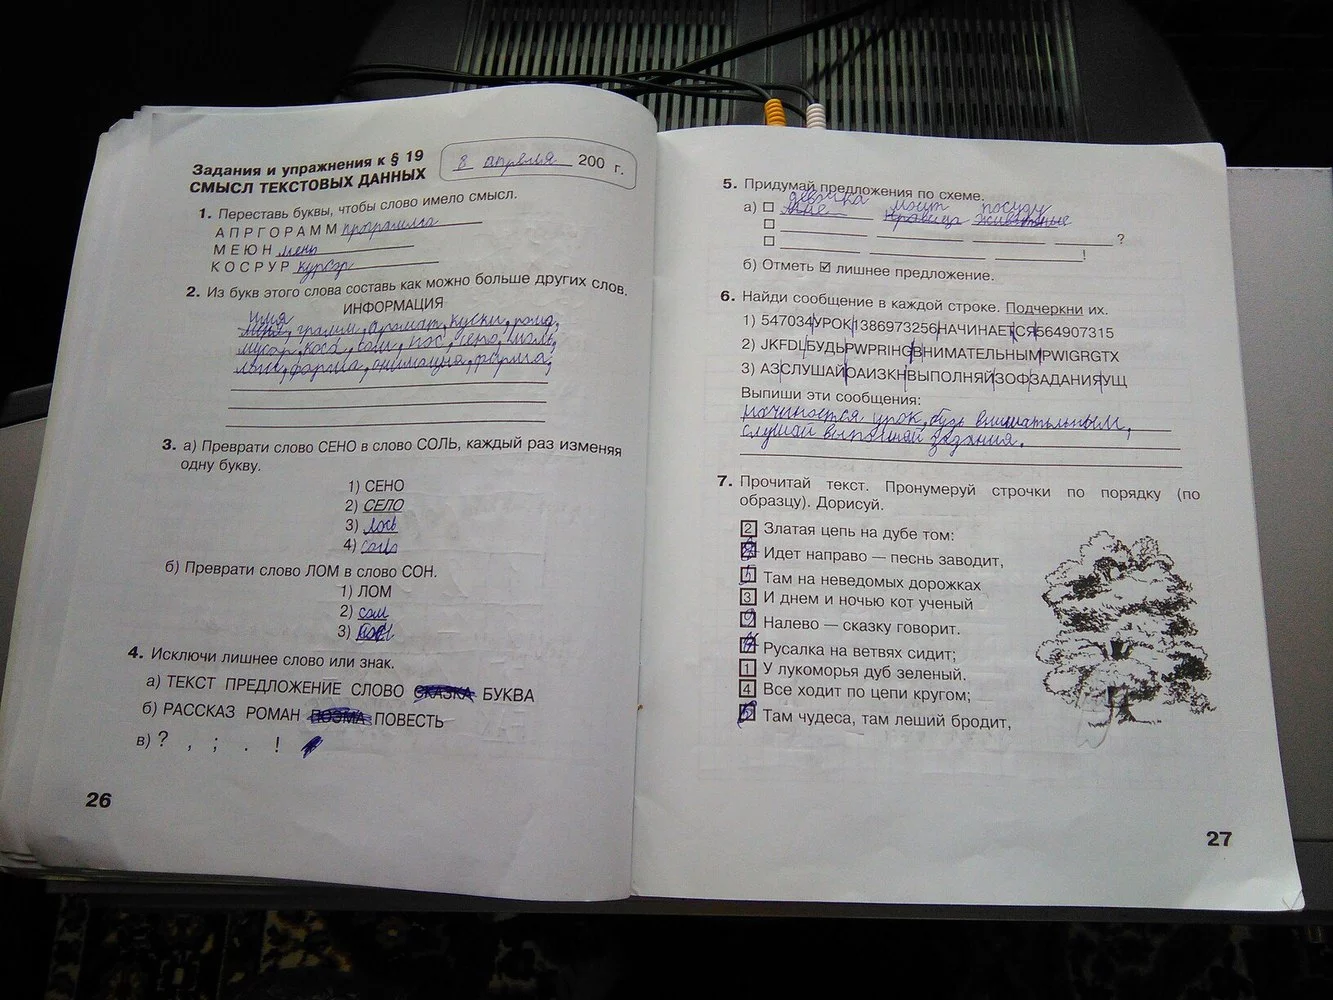 Задания и упражнения к § 19
СМЫСЛ ТЕКСТОВЫХ ДАННЫХ
8 апреля 200 г.
1. Переставь буквы, чтобы слово имело смысл.
А П Р Г О Р А М М программа
М Е Ю Н меню
К О С Р У Р курсор
2. Из букв этого слова составь как можно больше других слов.
ИНФОРМАЦИЯ
имя
грамм, аромат, куски, рома,
коса, сом, нос, сено, моль,
форма, анимация, фирма,
3. а) Преврати слово СЕНО в слово СОЛЬ, каждый раз изменяя
одну букву.
1) СЕНО
2) СЕЛО
3) лось
4) соль
б) Преврати слово ЛОМ в слово СОН.
1) ЛОМ
2) сом
3)
4. Исключи лишнее слово или знак.
а) ТЕКСТ ПРЕДЛОЖЕНИЕ СЛОВО СКАЗКА БУКВА
б) РАССКАЗ РОМАН ПОЭМА ПОВЕСТЬ
в) ? , ; . !
26
5. Придумай предложения по схеме.
девочка моет посуду
а) мне нравится животные
?
!
б) Отметь ☑ лишнее предложение.
6. Найди сообщение в каждой строке. Подчеркни их.
1) 547034УРОК1386973256НАЧИНАЕТСЯ564907315
2) JKFDLБУДЬPWPRIHGВНИМАТЕЛЬНЫМPWIGRGTX
3) АЗСЛУШАЙОАИЗКНВЫПОЛНЯЙЗОФЗАДАНИЯУЩ
Выпиши эти сообщения:
начинается урок, будь внимательным,
слушай выполняй задания.
7. Прочитай текст. Пронумеруй строчки по порядку (по
образцу). Дорисуй.
2 Златая цепь на дубе том:
Идет направо — песнь заводит,
Там на неведомых дорожках
3 И днем и ночью кот ученый
9 Налево — сказку говорит.
Русалка на ветвях сидит;
1 У лукоморья дуб зеленый.
4 Все ходит по цепи кругом;
Там чудеса, там леший бродит,
27